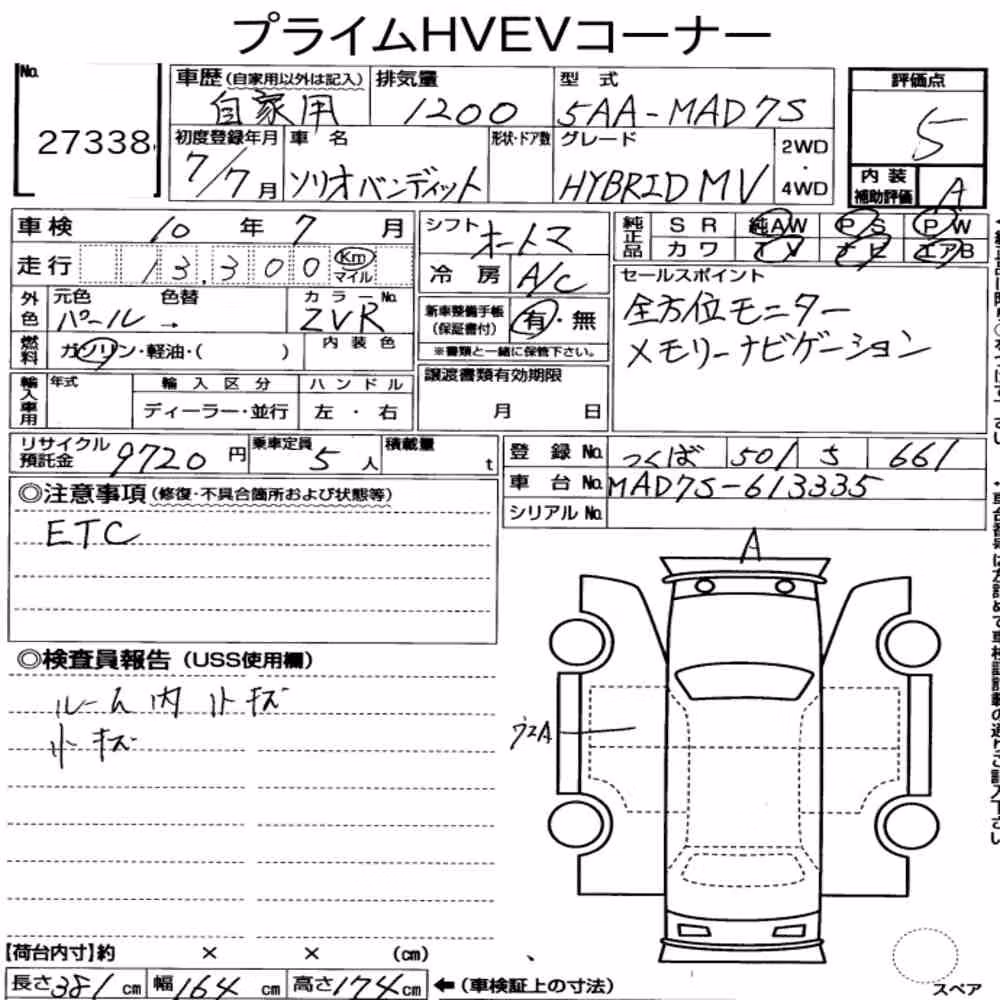 プライムHVEVコーナー
No. 27338
車歴(自家用以外は記入) 自家用
排気量 1200
型式 5AA-MAD7S
評価点 5
初度登録年月 7/7月
車名 ソリオバンディット
形状・ドア数
グレード HYBRID MV
2WD・4WD
内装補助評価 A
車検 10年7月
シフト オートマ
純正品 SR 純AW PS PW
カワ TV ナビ エアB
走行 13,300 Km マイル
冷房 A/C
セールスポイント
全方位モニター
メモリーナビゲーション
外色 元色 パール→ 色替
カラーNo. ZVR
新車整備手帳(保証書付) 有・無
※書類と一緒に保管下さい。
燃料 ガソリン・軽油・( )
内装色
輸入車用 年式 輸入区分 ハンドル
ディーラー・並行 左・右
譲渡書類有効期限
月 日
リサイクル預託金 9720円
乗車定員 5人
積載量 t
登録No. つくば 501 5 661
車台No. MAD7S-613335
シリアルNo.
◎注意事項(修復・不具合箇所および状態等)
ETC
◎検査員報告(USS使用欄)
ルーム内 小キズ
小キズ
A
【荷台内寸】約 × × (cm)
長さ381cm 幅164cm 高さ174cm ←(車検証上の寸法)
スペア